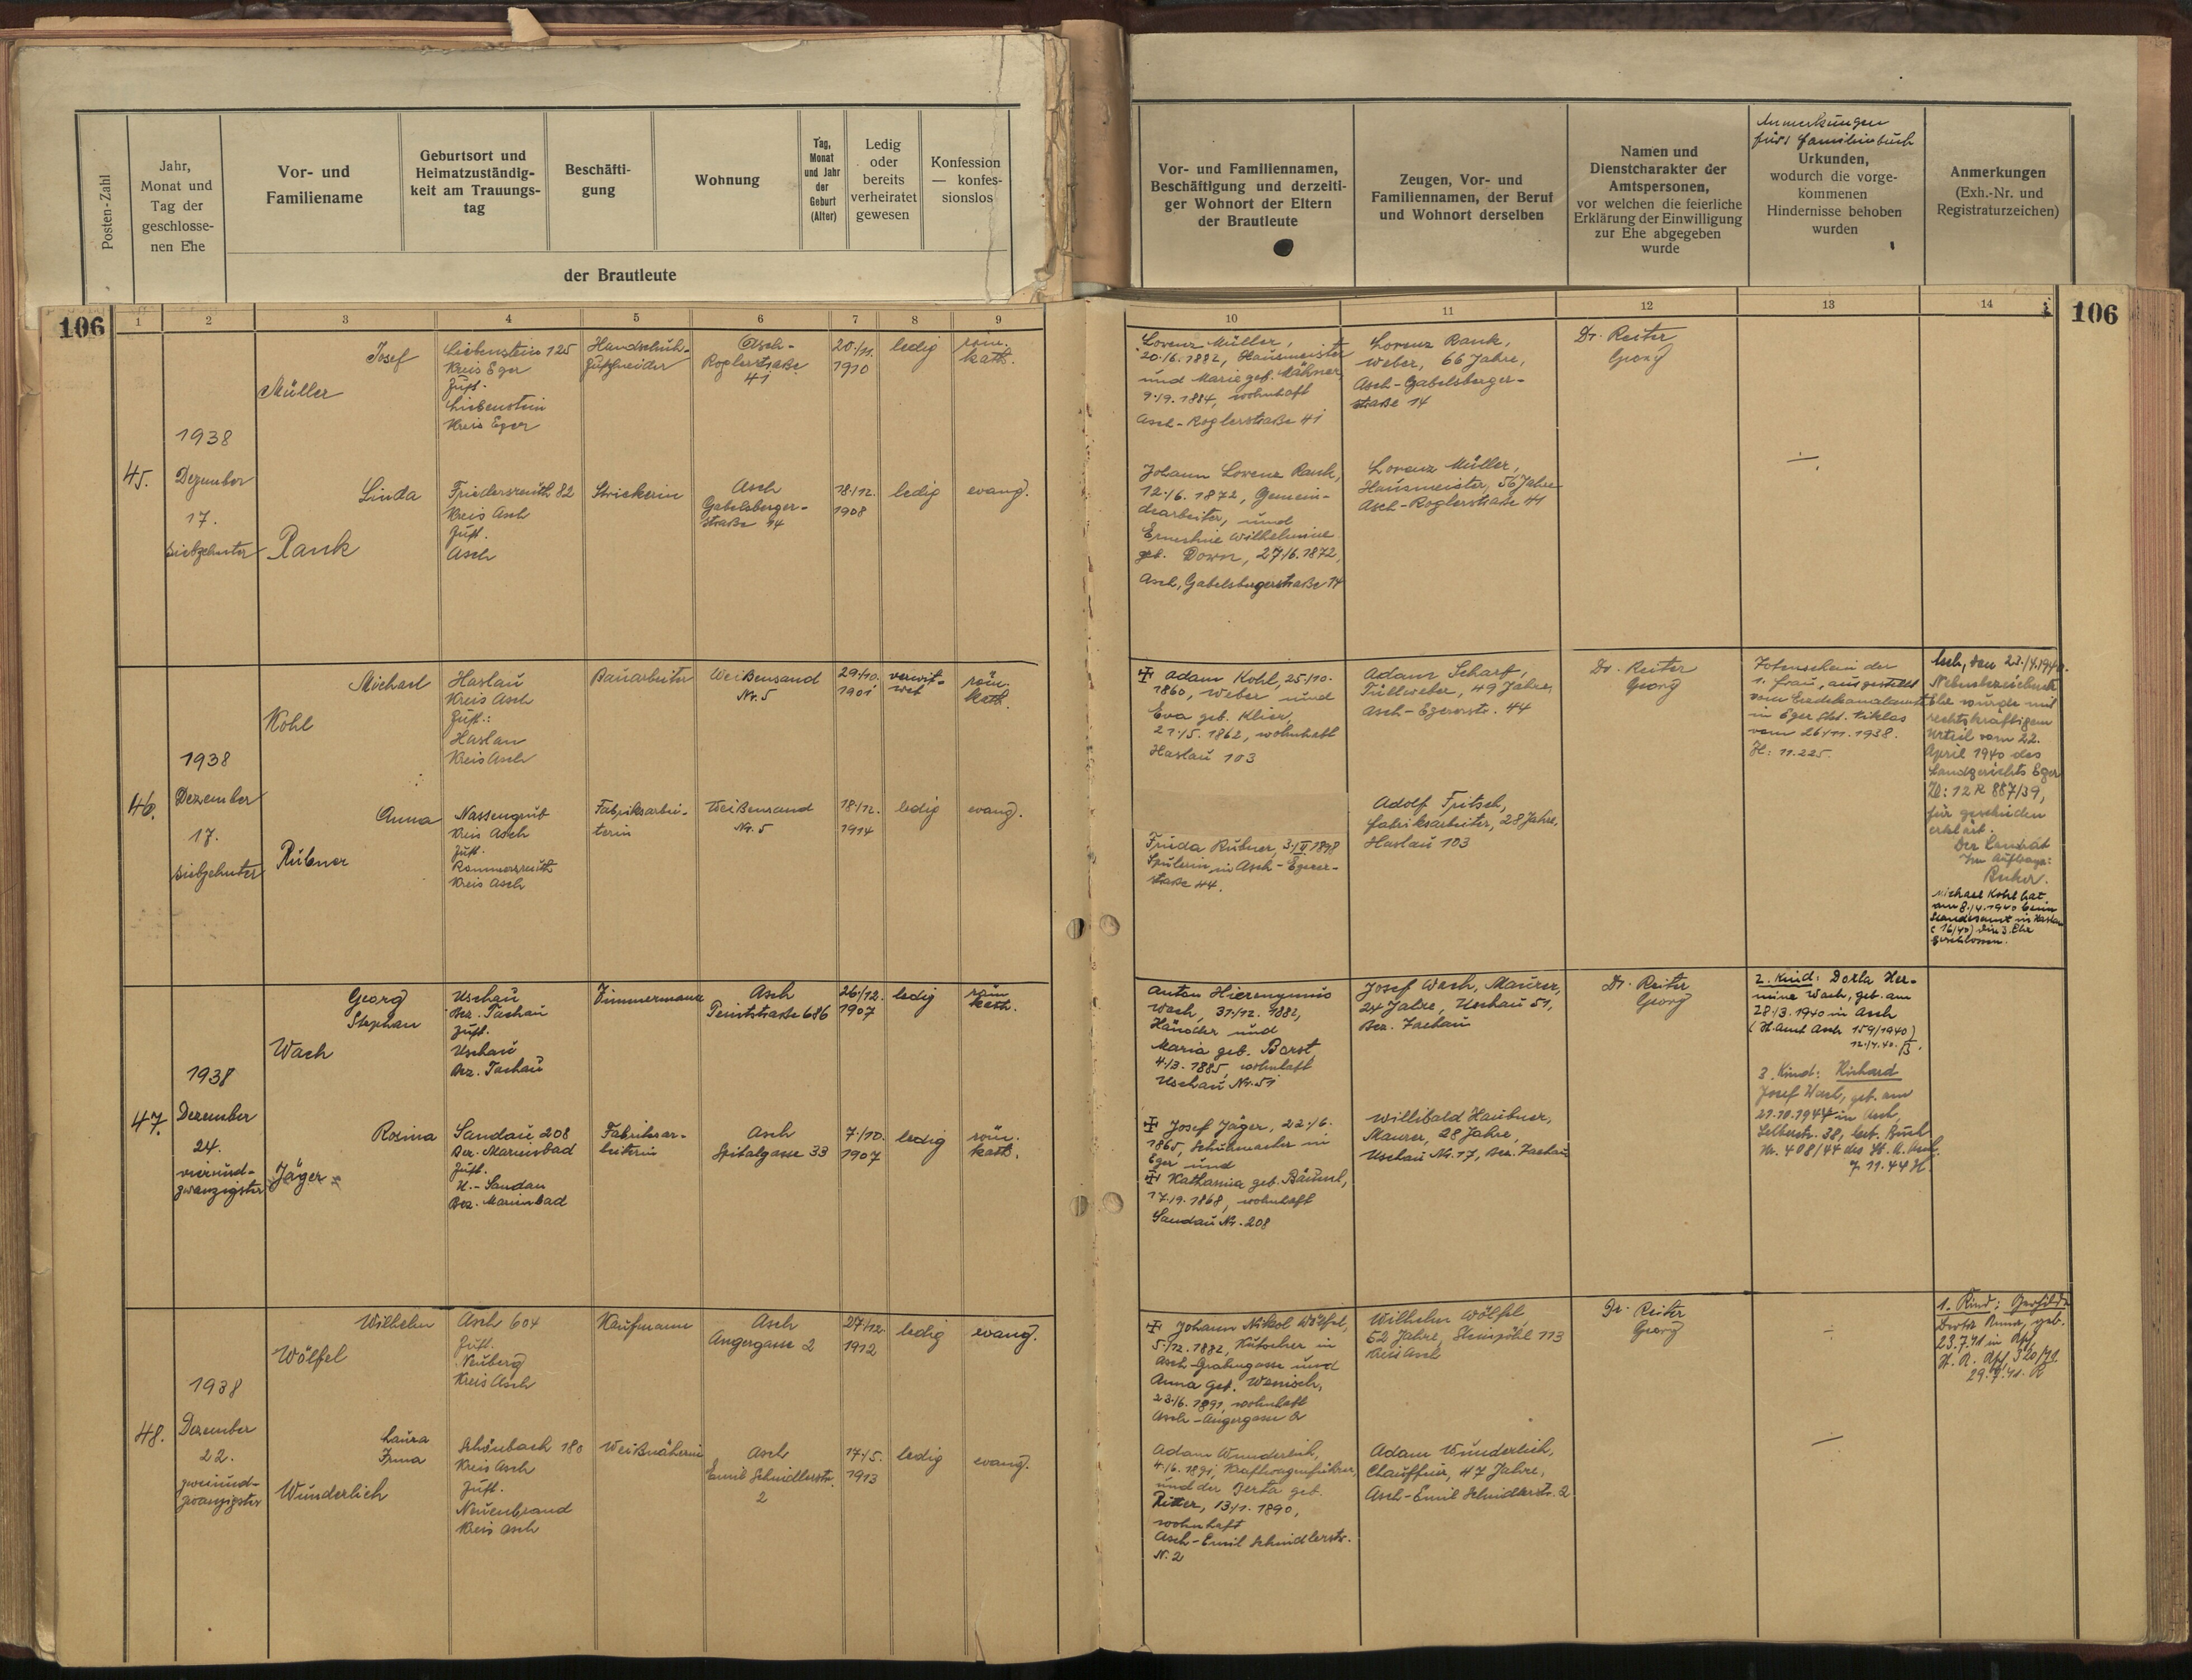 Posten-Zahl
Jahr,
Monat und
Tag der
geschlosse-
nen Ehe
Vor- und
Familiename
Geburtsort und
Heimatzuständig-
keit am Trauungs-
tag
Beschäfti-
gung
Wohnung
Tag,
Monat
und Jahr
der
Geburt
(Alter)
Ledig
oder
bereits
verheiratet
gewesen
Konfession
— konfes-
sionslos
der Brautleute
Vor- und Familiennamen,
Beschäftigung und derzeiti-
ger Wohnort der Eltern
der Brautleute
Zeugen, Vor- und
Familiennamen, der Beruf
und Wohnort derselben
Namen und
Dienstcharakter der
Amtspersonen,
vor welchen die feierliche
Erklärung der Einwilligung
zur Ehe abgegeben
wurde
Anmerkungen
fürs Familienbuch
Urkunden,
wodurch die vorge-
kommenen
Hindernisse behoben
wurden
Anmerkungen
(Exh.-Nr. und
Registraturzeichen)
106
1 2 3 4 5 6 7 8 9
10 11 12 13 14
106
45.
1938
Dezember
17.
siebzehnter
Josef
Müller
Liebenstein 125
Kreis Eger
Zust.
Liebenstein
Kreis Eger
Handschuh-
zuschneider
Asch-
Roglerstraße
41
20./11.
1910
ledig
röm.
kath.
Linda
Rank
Friedersreuth 82
Kreis Asch
Zust.
Asch
Strickerin
Asch
Gabelsberger-
straße 14
18./12.
1908
ledig
evang.
Lorenz Müller,
20./6. 1882, Hausmeister
und Marie geb. Mähner
9./9. 1884, wohnhaft
Asch-Roglerstraße 41
Johann Lorenz Rank,
12./6. 1872, Gemein-
dearbeiter, und
Ernestine Wilhelmine
geb. Dorn, 27./6. 1872,
Asch, Gabelsbergerstraße 14
Lorenz Rank,
Weber, 66 Jahre,
Asch-Gabelsberger-
straße 14
Lorenz Müller,
Hausmeister, 56 Jahre
Asch-Roglerstraße 41
Dr. Reiter
Georg
46.
1938
Dezember
17.
siebzehnter
Michael
Kohl
Haslau
Kreis Asch
Zust.:
Haslau
Kreis Asch
Bauarbeiter
Weißensand
Nr. 5
29./10.
1901
verwit-
wet
röm.
kath.
Anna
Rubner
Nassengrub
Kreis Asch
Zust.
Rommersreuth
Kreis Asch
Fabriksarbei-
terin
Weißensand
Nr. 5
18./12.
1914
ledig
evang.
Adam Kohl, 25./10.
1860, Weber und
Eva geb. Klier,
21./5. 1862, wohnhaft
Haslau 103
Frieda Rubner, 3./II. 1898
Spulerin in Asch-Egerer-
straße 44.
Adam Scharf,
Tüllweber, 49 Jahre,
Asch-Egererstr. 44
Adolf Fritsch,
Fabriksarbeiter, 28 Jahre,
Haslau 103
Dr. Reiter
Georg
Totenschein der
1. Frau, ausgestellt
vom Erzdekanalamte
in Eger Skt. Niklas
vom 26./11. 1938.
Zl: 11.225.
Asch, den 23./4. 1940.
Nebenbezeichnete
Ehe wurde mit
rechtskräftigem
Urteil vom 22.
April 1940 des
Landgerichts Eger
Zl: 12 R 887/39,
für geschieden
erklärt.
Der Landrat
Im Auftrage:
Michael Kohl hat
am 8./4. 1940 beim
Standesamt in Haslau
(16/40) die 3. Ehe
geschlossen.
47.
1938
Dezember
24.
vierund-
zwanzigster
Georg
Stephan
Wach
Uschau
Bez. Tachau
Zust.
Uschau
Bez. Tachau
Zimmermann
Asch
Peintstraße 686
26./12.
1907
ledig
röm.
kath.
Rosina
Jäger
Sandau 208
Bez. Marienbad
Zust.
U.-Sandau
Bez. Marienbad
Fabriksar-
beiterin
Asch
Spitalgasse 33
7./10.
1907
ledig
röm.
kath.
Anton Hieronymus
Wach, 31./12. 1882,
Häusler und
Maria geb. Borst,
4./3. 1885, wohnhaft
Uschau Nr. 51
Josef Jäger, 22./6.
1865, Schuhmacher in
Eger und
Katharina geb. Bäuml,
17./9. 1868, wohnhaft
Sandau Nr. 208
Josef Wach, Maurer,
24 Jahre, Uschau 51,
Bez. Tachau
Willibald Haubner,
Maurer, 28 Jahre,
Uschau Nr. 17, Bez. Tachau
Dr. Reiter
Georg
2. Kind: Dorla Her-
mine Wach, geb. am
28./3. 1940 in Asch
(St. Amt Asch 159/1940)
12./4. 40.
3. Kind: Richard
Josef Wach, geb. am
21.10.1944 in Asch,
Selberstr. 38,
Nr. 408/44 des St. A. Asch.
7. 11. 44
48.
1938
Dezember
22.
zweiund-
zwanzigster
Wilhelm
Wölfel
Asch 604
Zust.
Neuberg
Kreis Asch
Kaufmann
Asch
Angergasse 2
27./12.
1912
ledig
evang.
Laura
Irma
Wunderlich
Schönbach 180
Kreis Asch
Zust.
Neuenbrand
Kreis Asch
Weißnäherin
Asch
Emil Schindlerstr.
2
17./5.
1913
ledig
evang.
Johann Nikol Wölfel,
5./12. 1882, Kutscher in
Asch-Grabengasse und
Anna geb. Wenisch,
23./6. 1891, wohnhaft
Asch-Angergasse 2
Adam Wunderlich,
4./6. 1891, Kraftwagenführer,
und der Berta geb.
Ritter, 13./1. 1890,
wohnhaft
Asch-Emil Schindlerstr.
N. 2
Wilhelm Wölfel,
52 Jahre, Steinpöhl 113
Kreis Asch
Adam Wunderlich,
Chauffeur, 47 Jahre,
Asch-Emil Schindlerstr. 2
Dr. Reiter
Georg
1. Kind: Gerhilde
Berta Anna, geb.
23.7.41 in Asch,
St. A. Asch 320/41.
29.7.41. R